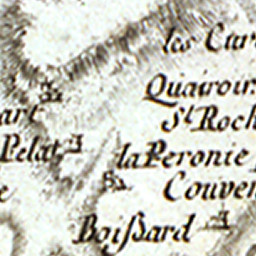 les Car
Quairoir
St Roch
art
Pelat
la Peronie
Couven
e
Boiſsard